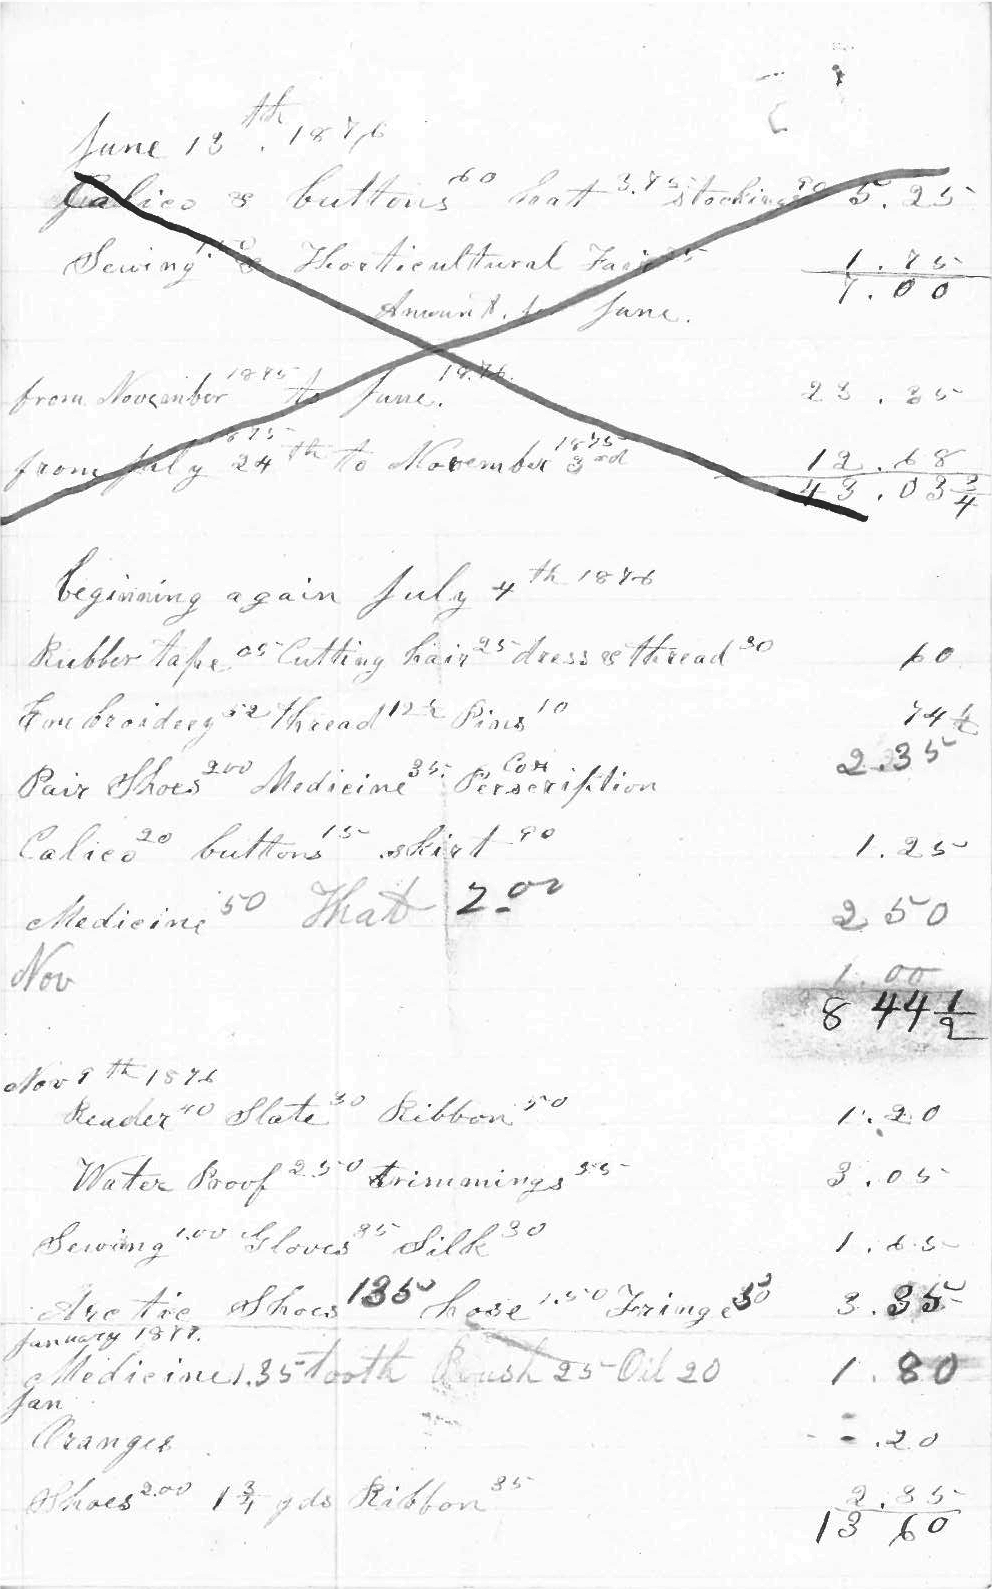 June 13th. 1876
Calico & buttons 60 hatt 3.75 stockings 90 5.25
Sewing & Horticultural Fair 25 1.75
7.00
Amount. for June.
from November 1875 to June. 1876. 23.35
from July 1875 24th to November 1875 3rd 12.68
43.03 3/4
beginning again July 4th 1876
Rubber tape 05 Cutting hair 25 dress & thread 30 60
Embroidery 52 thread 12 1/2 Pins 10 74 1/2
Pair Shoes 200 Medicine 35 Cox Perscription 2.35
Calico 20 buttons 15 skirt 90 1.25
Medicine 50 Hatt 2.00 2 50
Nov 1.00
8 44 1/2
Nov 9th 1876
Reader 40 Slate 30 Ribbon 50 1.20
Water Proof 2.50 trimmings 55 3.05
Sewing 1.00 Gloves 35 Silk 30 1.65
Arctic Shoes 135 hose 1.50 Fringe 50 3.35
January 1877.
Medicine 1.35 tooth Brush 25 Oil 20 1.80
Jan
Oranges .20
Shoes 2.00 1 3/4 yds Ribbon 35 2.35
13 60